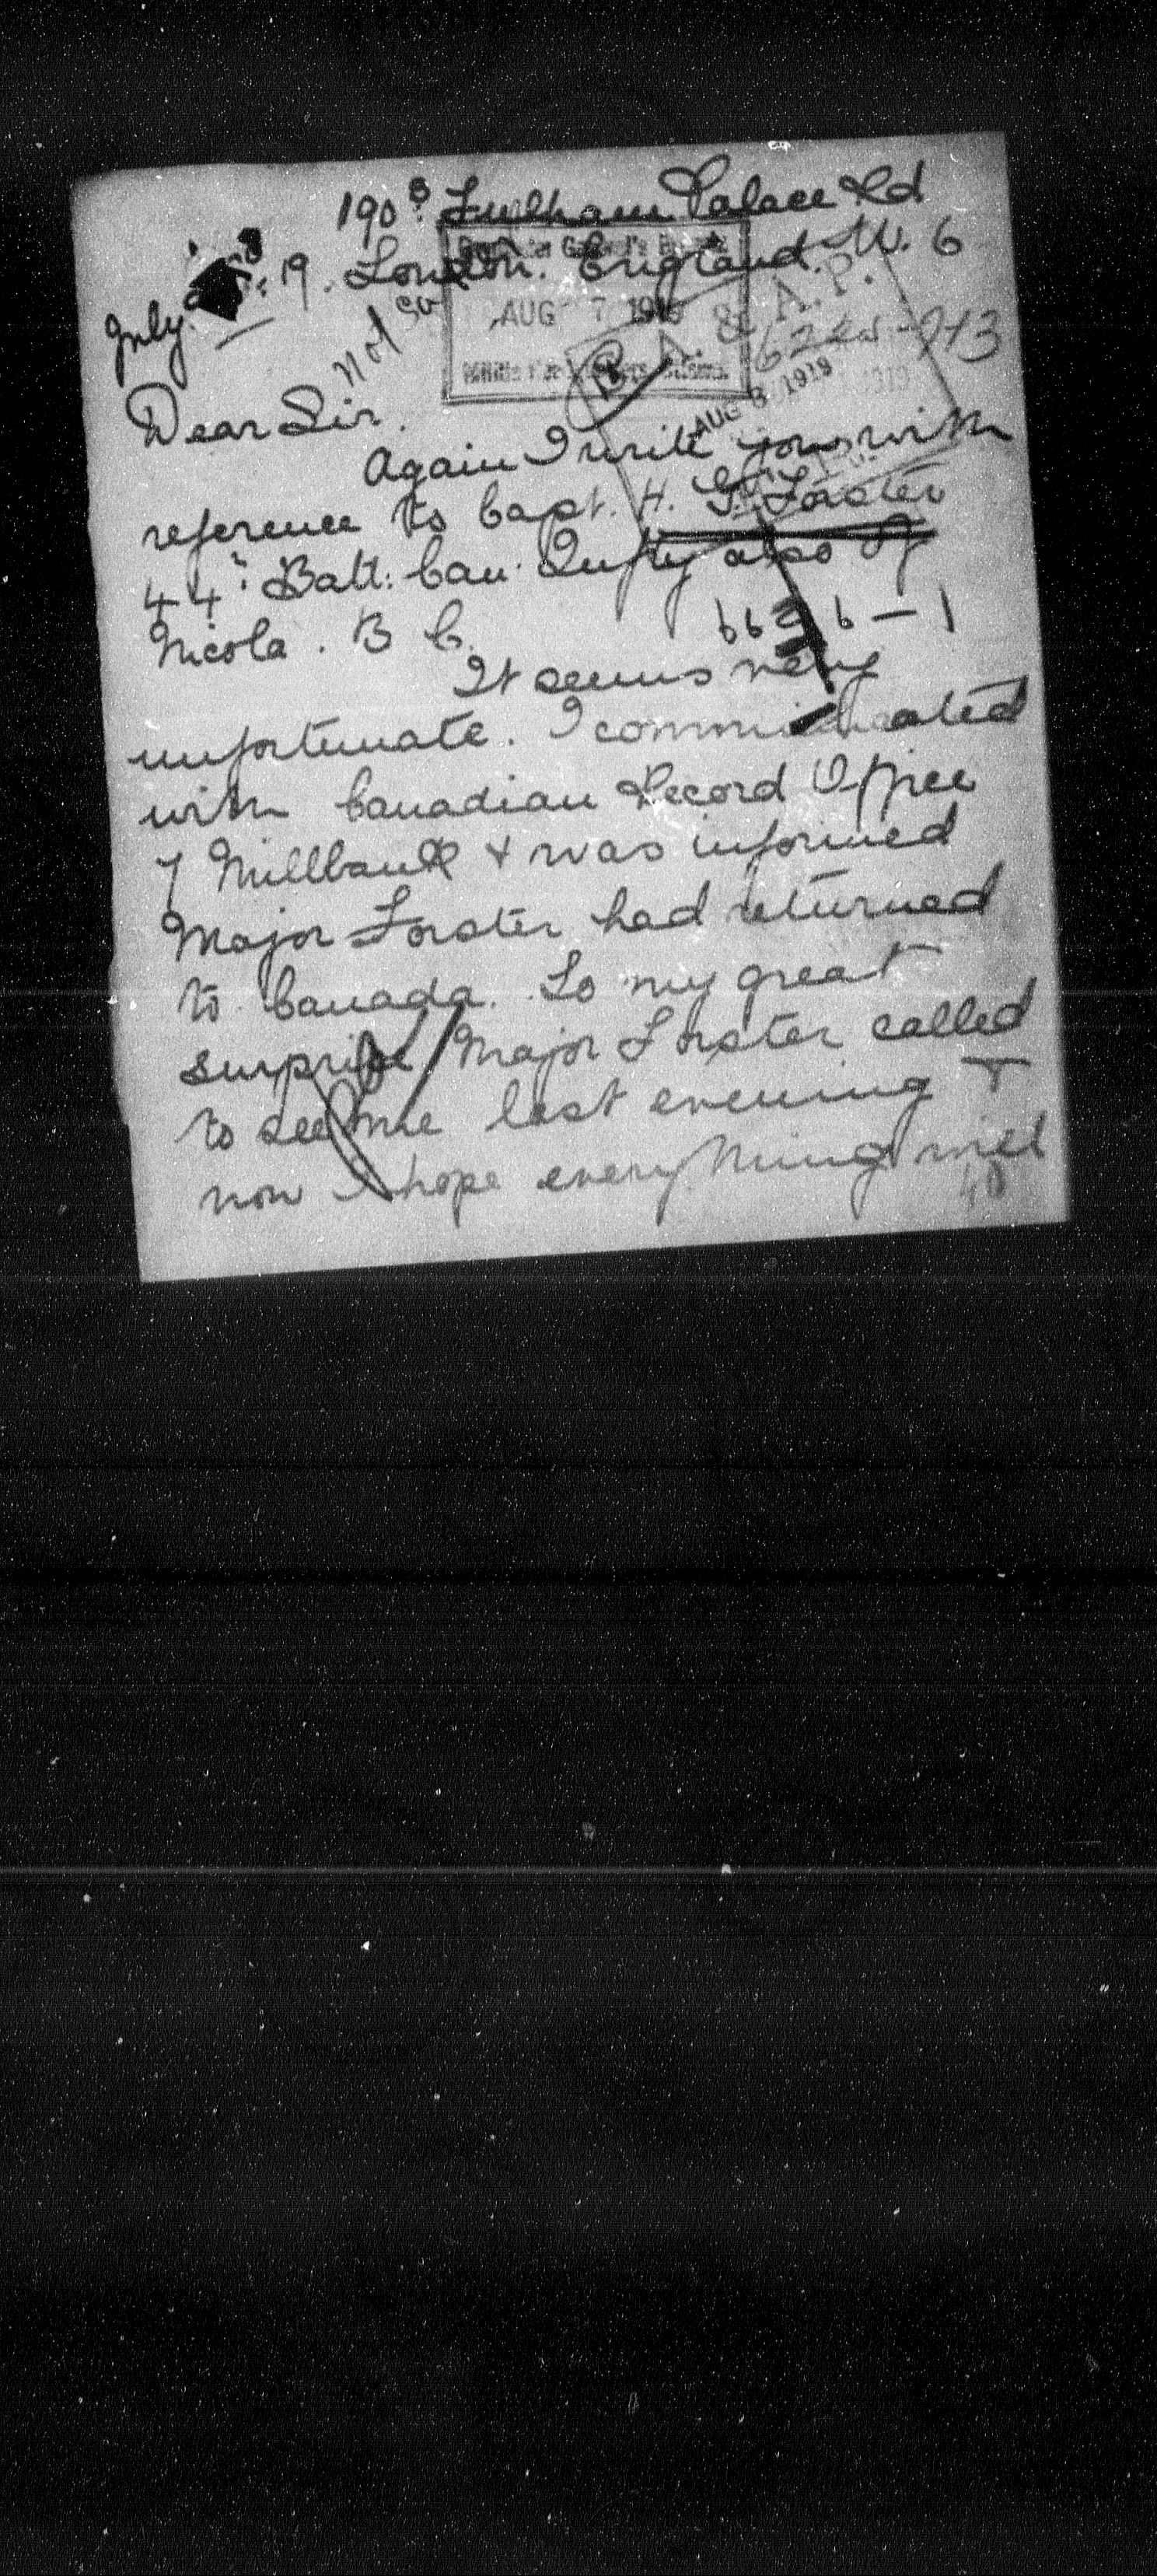 190B Fulham Palace Rd
London. England. W. 6
July 19.
Not
AUG 7 1919
B. A. & A. P.
AUG 8 1919
Dear Sir.
Again I write you with
reference to Capt. H. G. Forster
44: Batt: Can. Infty also of
Nicola. B C.
6636-1
It seems very
unfortunate. I communicated
with Canadian Record Office
7 Millbank & was informed
Major Forster had returned
to Canada. To my great
surprise Major Forster called
to see me last evening &
now I hope everything will
40